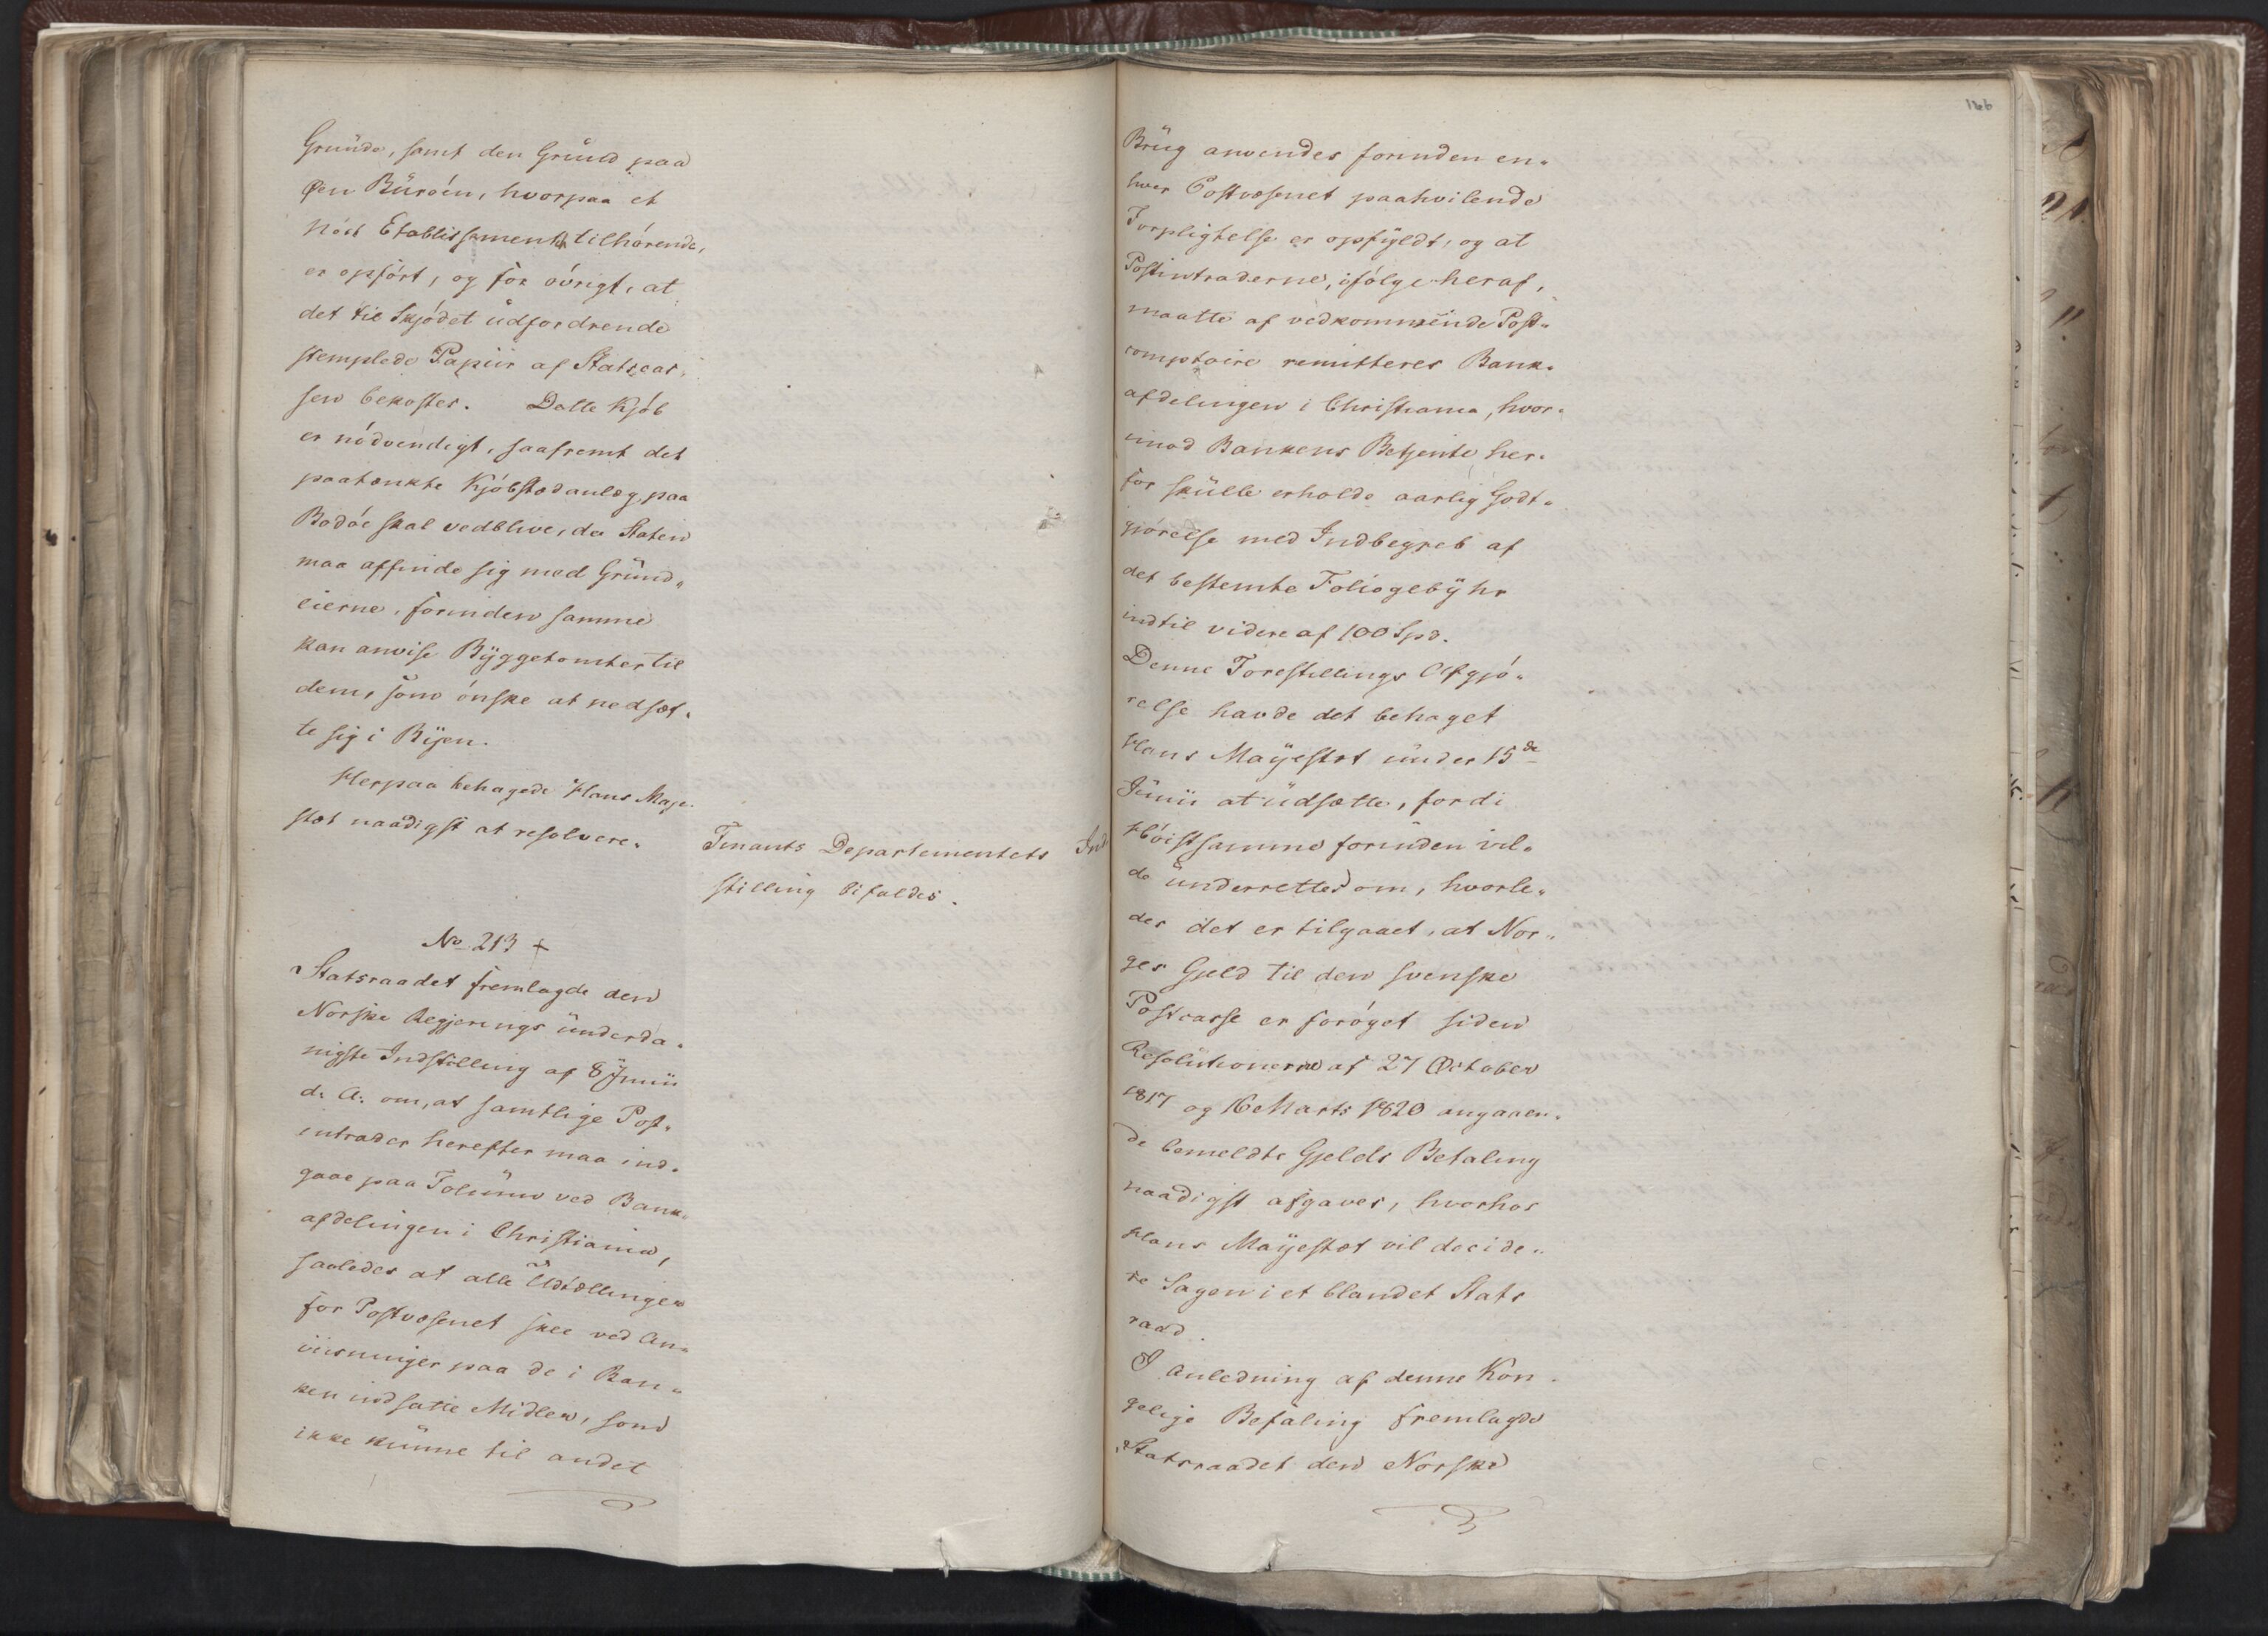 Grunde, samt den Grund paa
Øen Buroën, hvorpaa et
Nöit Etablissement tilhörende,
er opfört, og for övrigt, at
det til Skjödet udfordrende
stemplede Papiir af Statscas,
sen bekostes. Dette Kjöb
er nödvendigt, saafremt det
paatænkte Kjöbstædanlæg paa
Bodöe skal vedblive, da Staten
maa affinde sig med Grund,,
eierne, forinden samme
kan anvise Byggetomter til
dem, som önske at nedsæt,
te sig i Byen.
Herpaa behagede Hans Maje-
stæt naadigst at resolvere.
Finants Departementets Ind
stilling bifaldes.
No 213 +
Statsraadet fremlagde den
Norske Regjerings underda-
nigste Indstilling af 8 Junii
d: A: om, at samtlige Post,
intrader herefter maa ind-
gaae paa Folium ved Bank,
afdelingen i Christiania,
saaledes at alle Udtællinger
for Postvæsenet skee ved An,,
viisninger paa de i Ban,,
ken indsatte Midler, som
ikke kunne til andet
166
Brug anvendes forinden en,
hver Postvæsenet paahvilende
Forpligtelse er opfyldt, og at
Postintraderne, ifölge heraf,
maatte af vedkommende Post,,
comptoire remitteres Bank-
afdelingen i Christiania, hvor-
imod Bankens Betjente her-
for skulle erholde aarlig Godt,
gjörelse med Indbegreb af
det bestemte Foliogebyhr
indtil videre af 100 Spd.
Denne Forestillings Afgjö,,
relse havde det behaget
Hans Mayestæt under 15de
Junii at udsætte, fordi
Höistsamme forinden vil,
de underrettes om, hvorle,,
des det er tilgaaet, at Nor,,
ges Gjeld til den svenske
Postcasse er foröget siden
Resolutionerne af 27 October
1817 og 16 Marts 1820 angaaen,
de bemeldte Gjelds Betaling
naadigst afgaves, hvorhos
Hans Mayestæt vil decide,,
re Sagen i et blandet Stats
raad.
I Anledning af denne Kon-
gelige Befaling fremlagde
Statsraadet den Norske